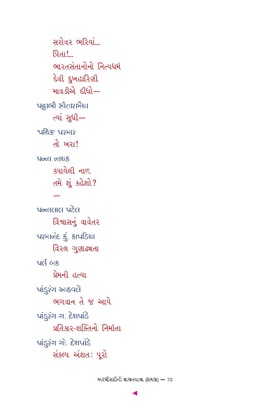 સરોવર ભરિયાં...
પિતા!...
ભારતસંતાનોનો નિત્યધર્મ
દેવી દુખહારિણી
માવડીએ દીધો—
પટ્ટાભી સીતારામૈયા
ત્યાં સુધી—
'પથિક' પરમાર
તો ખરા!
પન્ના નાયક
કપાયેલી નાળ
તમે શું કહેશો?
—
પન્નાલાલ પટેલ
વિશ્વાસનું વાવેતર
પરમાનંદ કું. કાપડિયા
વિરલ ગુણાઢ્યતા
પર્લ બક
પ્રેમની હત્યા
પાંડુરંગ આઠવલે
ભગવાન તે જ આપે
પાંડુરંગ ગ. દેશપાંડે
પ્રતિકાર-શક્તિનો નિર્માતા
પાંડુરંગ ગો. દેશપાંડે
સંકલ્પ અંશતઃ પૂરો
અરધીસદીની વાચનયાત્રા (સમગ્ર) — 70